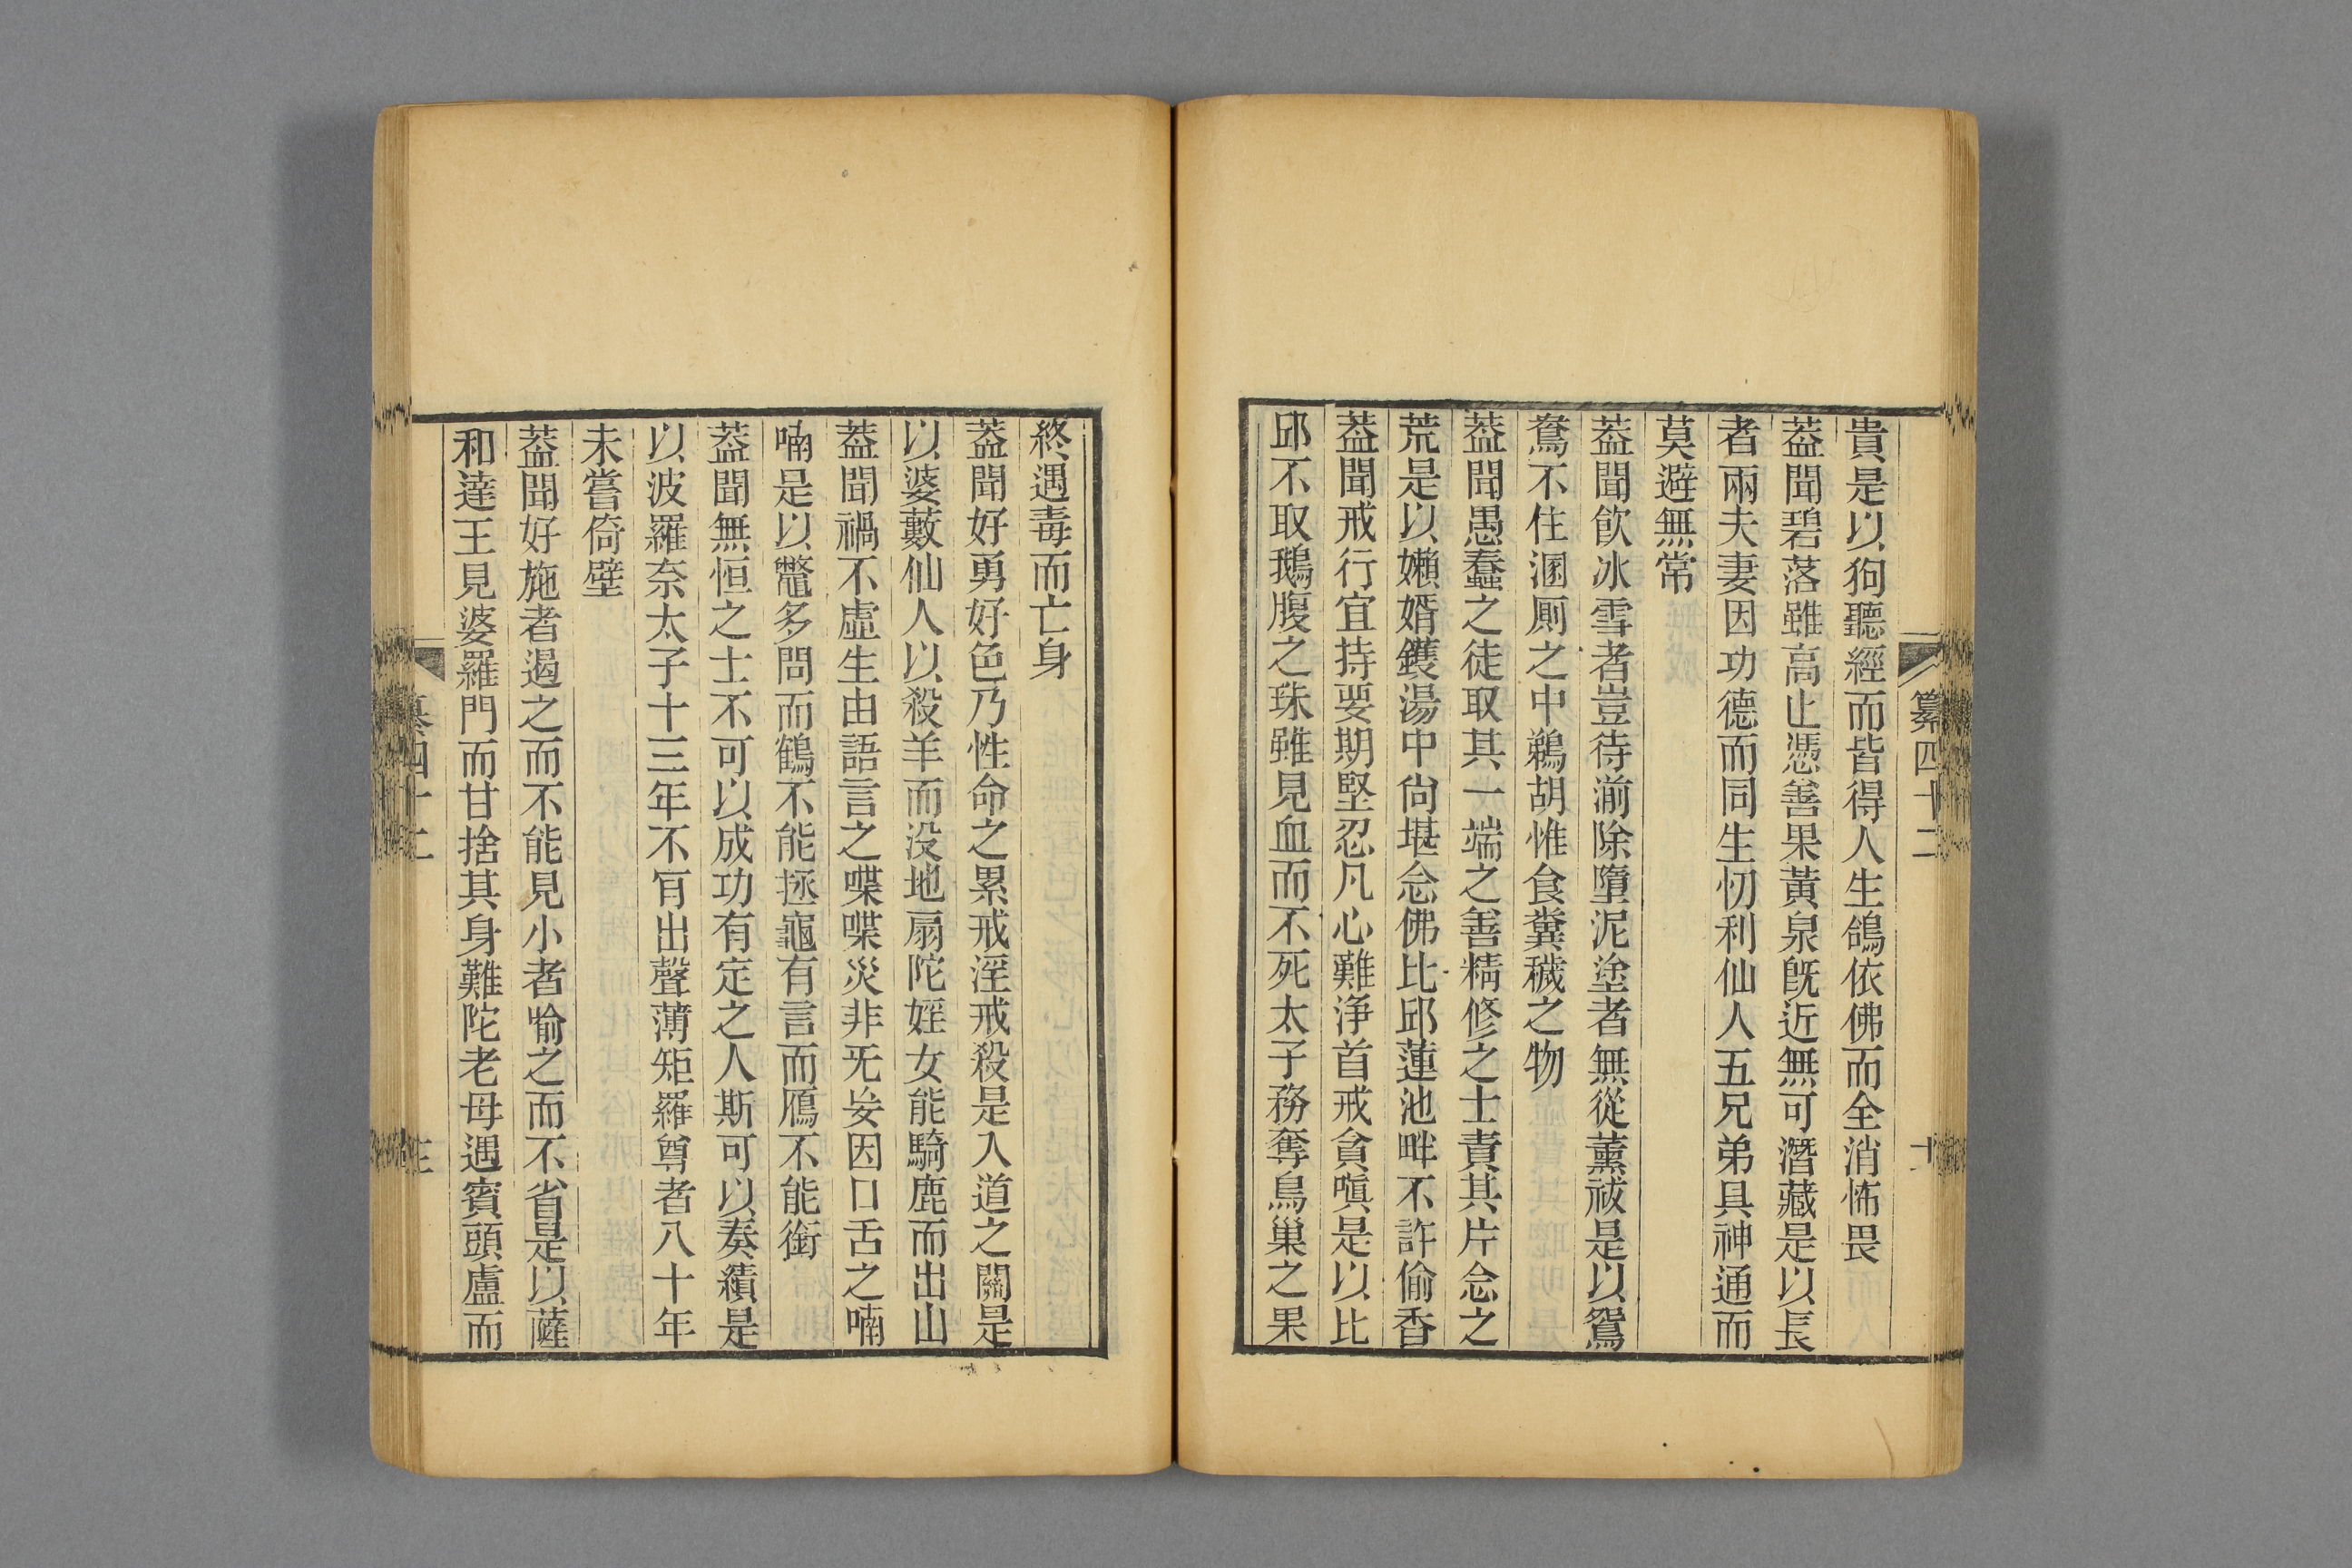 纂四十二
十
貴是以狗聽經而皆得人生鴿依佛而全消怖畏
葢聞碧落雖高止憑善果黃泉旣近無可潛藏是以長
者兩夫妻因功德而同生忉利仙人五兄弟具神通而
莫避無常
葢聞飮冰雪者豈待湔除墮泥塗者無從薰祓是以鴛
鴦不住溷厠之中鵜胡惟食糞穢之物
葢聞愚蠢之徒取其一端之善精修之士責其片念之
荒是以嬾婿鑊湯中尙堪念佛比邱蓮池畔不許偷香
葢聞戒行宜持要期堅忍凡心難淨首戒貪嗔是以比
邱不取鵝腹之珠雖見血而不死太子務奪鳥巢之果
終遇毒而亡身
葢聞好勇好色乃性命之累戒淫戒殺是入道之關是
以婆藪仙人以殺羊而没地扇陀婬女能騎鹿而出山
葢聞禍不虛生由語言之喋喋災非旡妄因口舌之喃
喃是以鼈多問而鶴不能拯龜有言而鴈不能銜
葢聞無恒之士不可以成功有定之人斯可以奏績是
以波羅奈太子十三年不肯出聲薄矩羅尊者八十年
未嘗倚壁
葢聞好施者遏之而不能見小者喻之而不省是以薩
和達王見婆羅門而甘捨其身難陀老母遇賓頭盧而
纂四十二